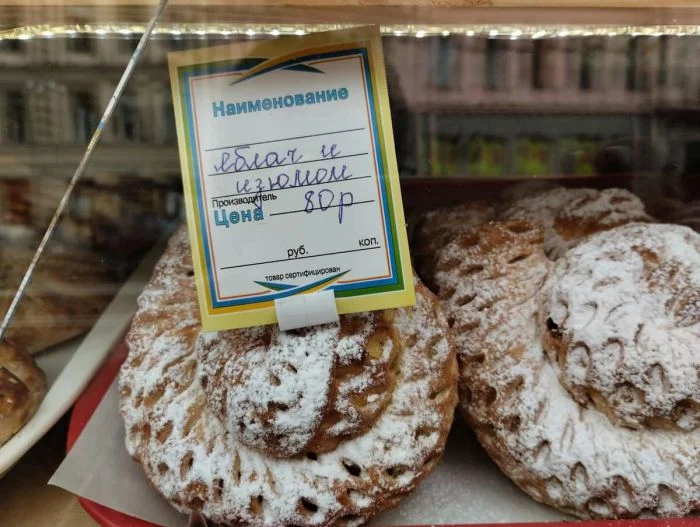 Наименование
яблач и
изюмом
Производитель
Цена 80р
руб. коп.
товар сертифицирован